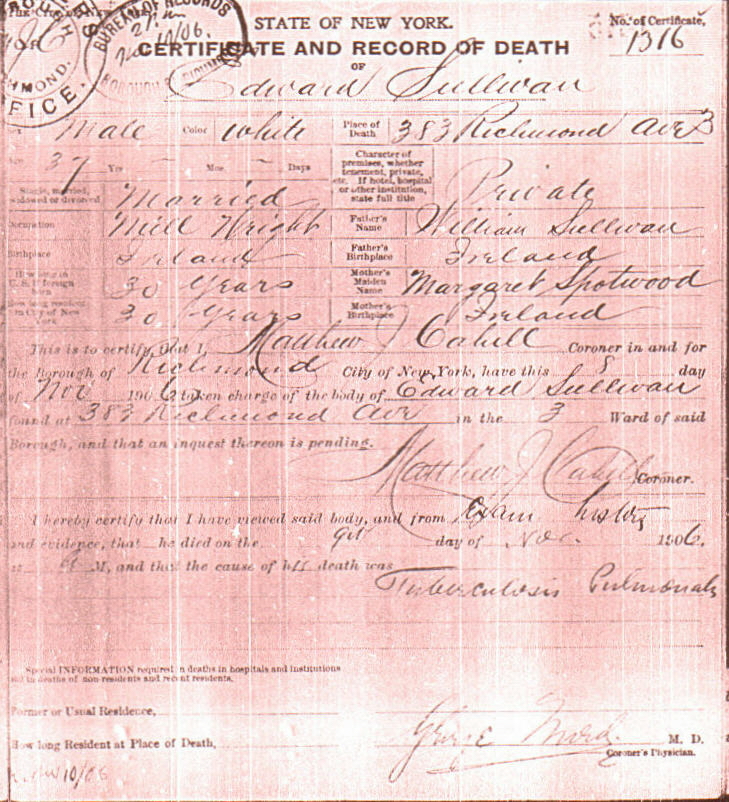 STATE OF NEW YORK.
No. of Certificate,
1316
CERTIFICATE AND RECORD OF DEATH
OF
Edward Sullivan
BUREAU OF RECORDS
RICHMOND.
OFFICE.
Male Color White Place of Death 383 Richmond Ave 3
37 Yrs - Mos. - Days Character of premises, whether tenement, private, etc. If hotel, hospital or other institution, state full title Private
Single, married, widowed or divorced Married
Occupation Mill Wright Father's Name William Sullivan
Birthplace Ireland Father's Birthplace Ireland
How long in U. S. if foreign born 30 Years Mother's Maiden Name Margaret Spotwood
How long resident in City of New York 30 Years Mother's Birthplace Ireland
This is to certify that I, Matthew J Cahill Coroner in and for
the Borough of Richmond City of New York, have this 8 day
of Nov 1906 taken charge of the body of Edward Sullivan
found at 383 Richmond Ave in the 3 Ward of said
Borough, and that an inquest thereon is pending.
Matthew J Cahill Coroner.
I hereby certify that I have viewed said body, and from Exam. history
and evidence, that he died on the day of Nov. 1906.
M, and that the cause of his death was
Tuberculosis Pulmonalis
Special INFORMATION required in deaths in hospitals and institutions
and in deaths of non-residents and recent residents.
Former or Usual Residence,
How long Resident at Place of Death,
George Mord M. D.
Coroner's Physician.
10/06